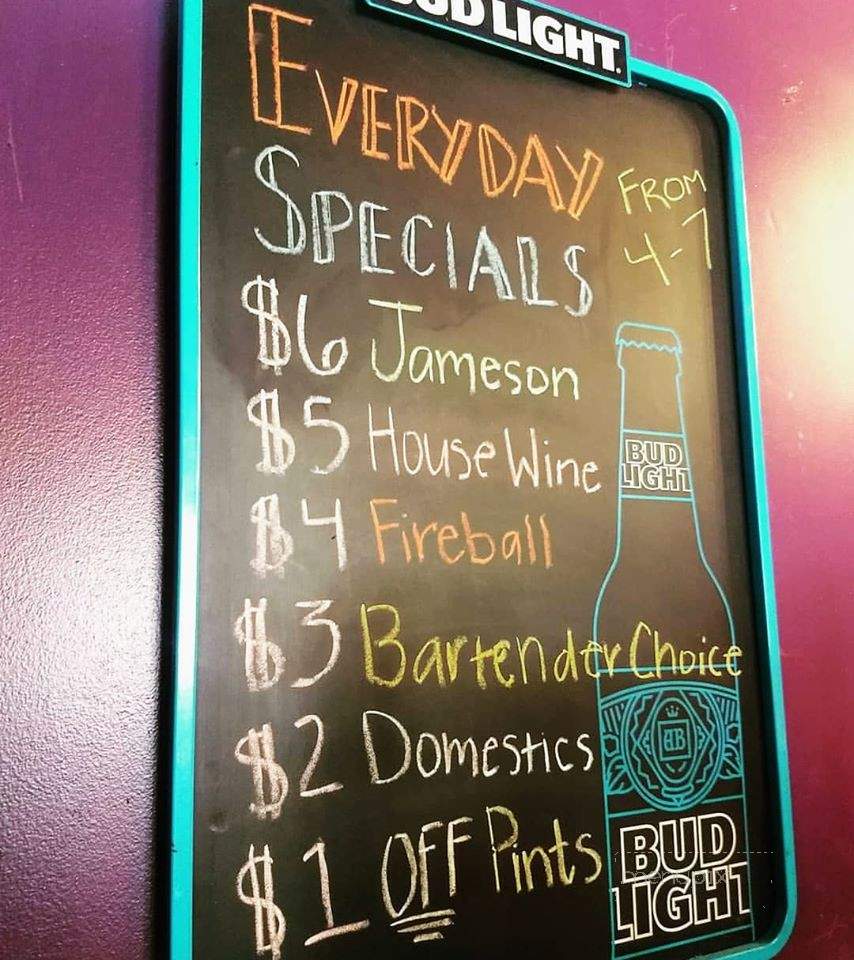 BUD LIGHT.
EVERYDAY
SPECIALS
FROM
4-7
$6 Jameson
$5 House Wine
$4 Fireball
$3 Bartender Choice
$2 Domestics
$1 OFF Pints
BUD
LIGHT
BUD
LIGHT